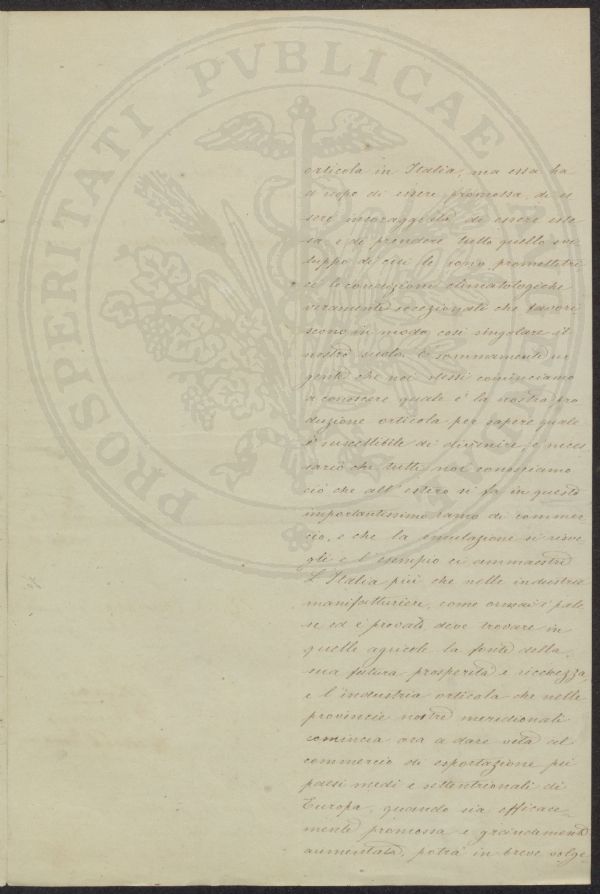 PROSPERITATI PVBLICAE
orticola in Italia, ma essa ha
d'uopo di essere promossa, di es
sere incoraggiata di essere este
sa, e di prendere tutto quello svi
luppo di cui le sono promettitri
ci le condizioni climatologiche
veramente eccezionali che favori
scono in modo così singolare il
nostro suolo. È sommamente ur
gente che noi stessi cominciamo
a conoscere quale è la nostra pro
duzione orticola per sapere quale
è suscettibile di divenire, è neces
sario che tutti noi conosciamo
ciò che all'estero si fa in questo
importantissimo ramo di commer
cio, e che la emulazione si sve
gli e l'esempio ci ammaestri
L'Italia più che nelle industrie
manifatturiere, come oramai è pale
se ed è provato deve trovare in
quelle agricole la fonte della
sua futura prosperità e ricchezza,
e l'industria orticola che nelle
provincie nostre meridionali
comincia ora a dare vita al
commercio di esportazione pei
paesi medi e settentrionali di
Europa, quando sia efficace-
mente promossa e grandemente
aumentata, potrà in breve volge-